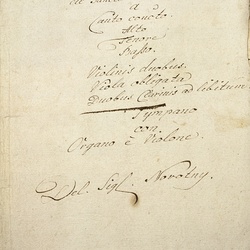 a
Canto concto.
Alto
Tenore
Basso.
Violinis duobus.
Viola obligata
Duobus Clarinis ad libitum
Tympano
con
Organo è Violone.
Del. Sigl. Novotny.